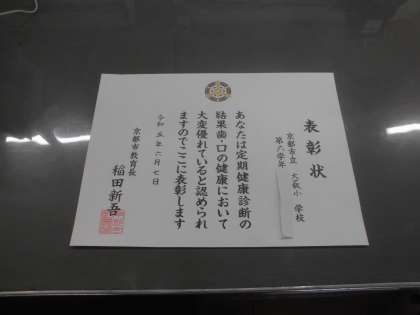 表彰状
京都市立 大藪小 学校
第六学年
あなたは定期健康診断の
結果歯・口の健康において
大変優れていると認められ
ますのでここに表彰します
令和五年六月七日
京都市教育長
稲田新吾